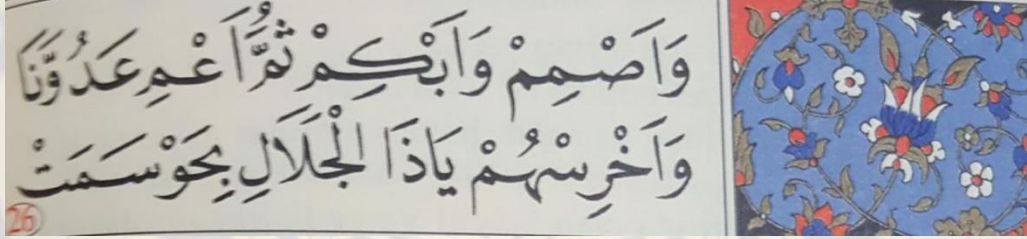 وَاَصْمِمْ وَاَبْكِمْ ثُمَّ اَعْمِ عَدُوَّنَا
وَاَخْرِسْهُمْ يَاذَا الْجَلَالِ بِحَوْسَمَتْ
26